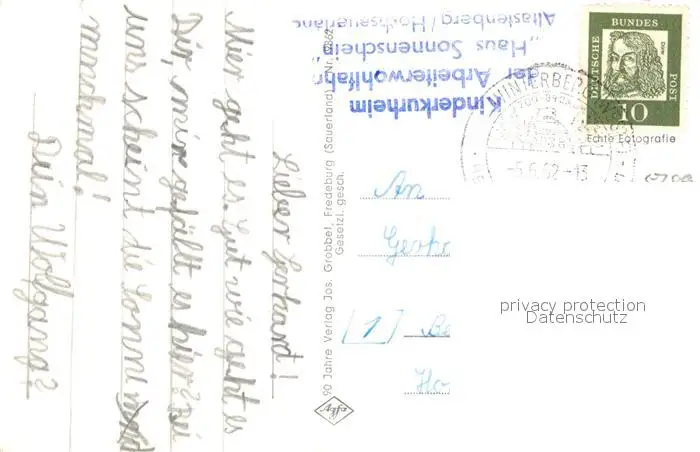 Lieber Gerhart!
Mier geht es gut wie geht es
Dir, mir gefällt es hier? Bei
uns scheint die Sonne
manchmal!
Dein Wolfgang?
Kinderkurheim
der Arbeiterwohlfahrt
„Haus Sonnenschein"
Altastenberg/Hochsauerland
90 Jahre Verlag Jos. Grobbel, Fredeburg (Sauerland)
Gesetzl. gesch.
Agfa
DEUTSCHE BUNDES POST
10
WINTERBERG
-5.6.62-13
Echte Fotografie
An
Gerh
[1] Be
Ho
privacy protection
Datenschutz